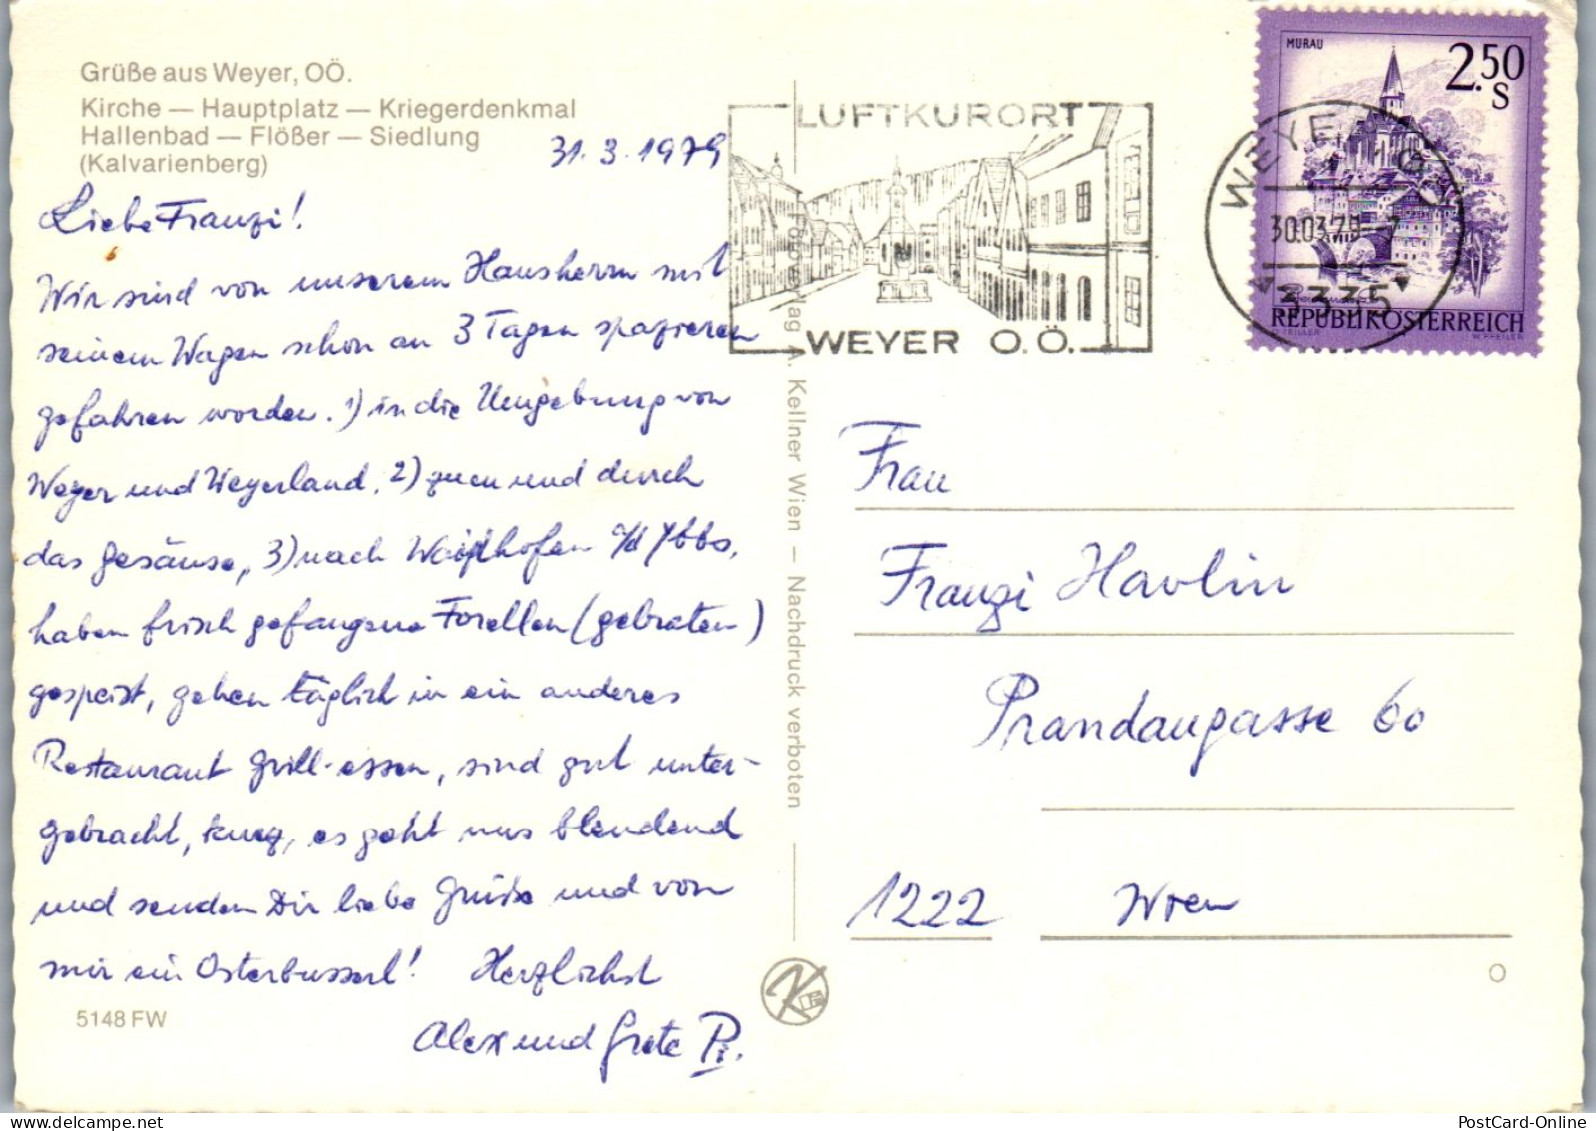 Grüße aus Weyer, OÖ.
Kirche — Hauptplatz — Kriegerdenkmal
Hallenbad — Flößer — Siedlung
(Kalvarienberg)
31. 3. 1979
Liebe Franzi!
Wir sind von unserem Hausherrn mit
seinem Wagen schon an 3 Tagen spazieren
gefahren worden. 1) in die Umgebung von
Weyer und Weyerland, 2) zum und durch
das Gesäuse, 3) nach Waidhofen a/d Ybbs,
haben frisch gefangene Forellen (gebraten)
gespeist, gehen täglich in ein anderes
Restaurant Grill-essen, sind gut unter-
gebracht, kurz, es geht uns blendend
und senden Dir liebe Grüße und von
mir ein Osterbusserl! Herzlichst
Alex und Grete Pi.
5148 FW
Kellner Wien — Nachdruck verboten
LUFTKURORT
WEYER O.Ö.
MURAU
2.50
S
REPUBLIK ÖSTERREICH
WEYER
30.03.79–7
3335
Frau
Franzi Havlin
Prandaugasse 60
1222 Wien
PostCard-Online